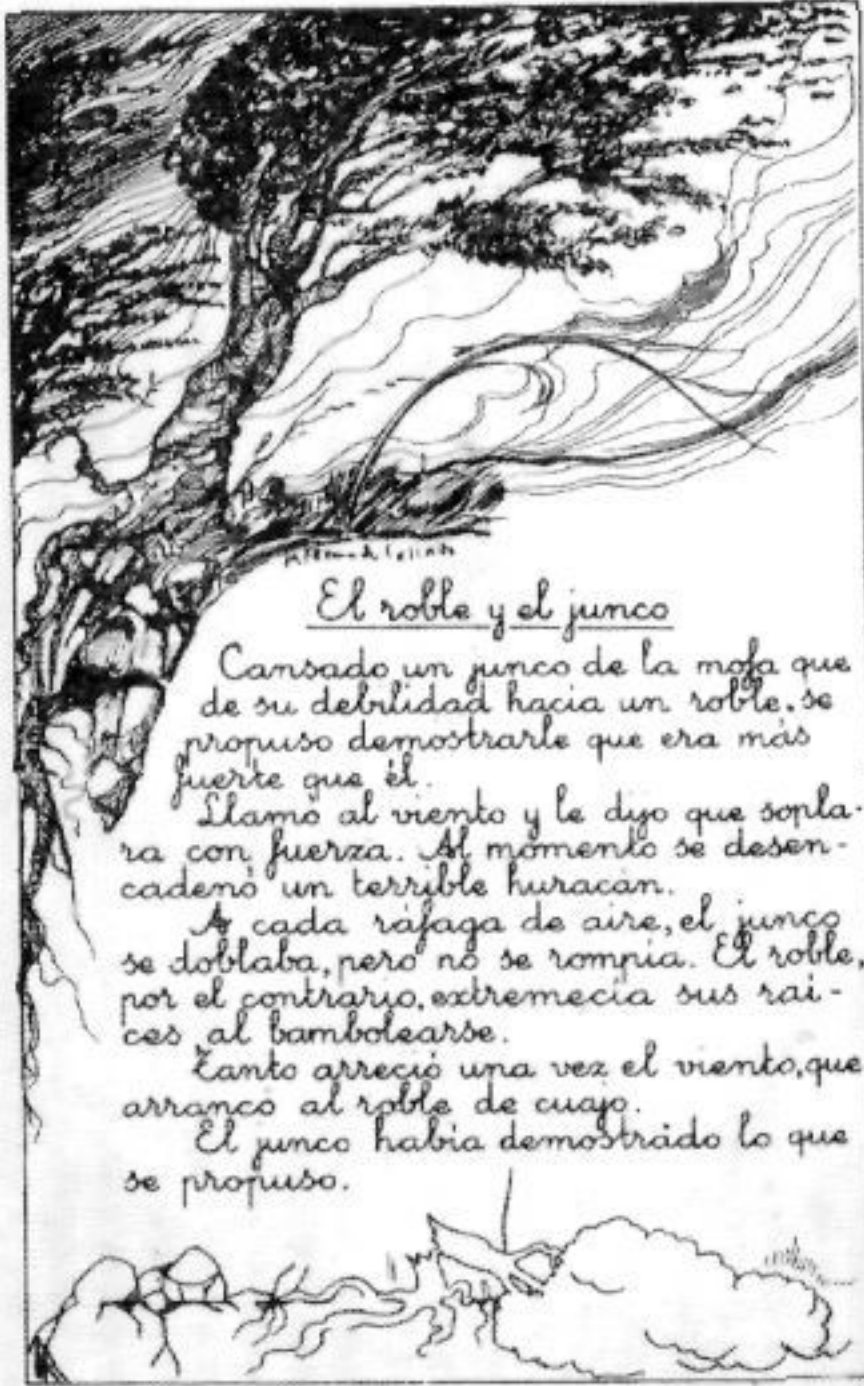 El roble y el junco
Cansado un junco de la mofa que
de su debilidad hacia un roble, se
propuso demostrarle que era más
fuerte que él.
Llamó al viento y le dijo que sopla-
ra con fuerza. Al momento se desen-
cadenó un terrible huracán.
A cada ráfaga de aire, el junco
se doblaba, pero no se rompía. El roble,
por el contrario, extremecía sus raí-
ces al bambolearse.
Tanto arreció una vez el viento, que
arrancó al roble de cuajo.
El junco había demostrado lo que
se propuso.